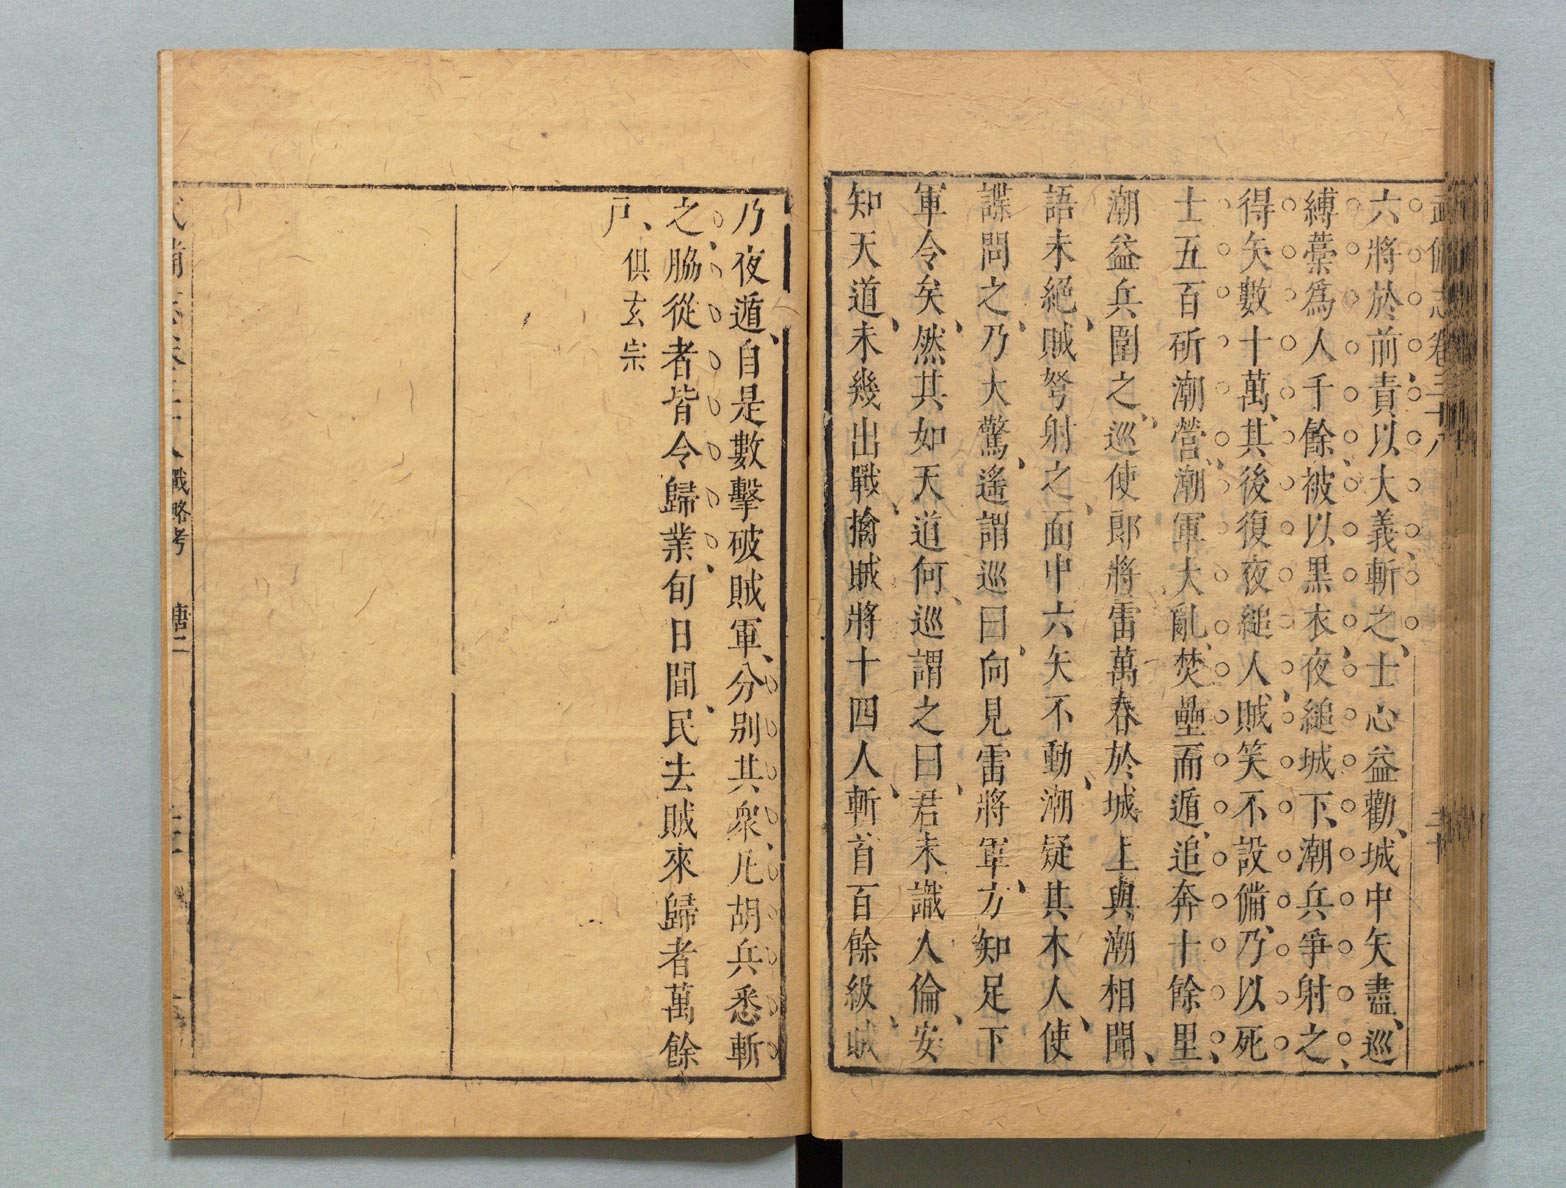 武備志卷三十八
二十
六將於前、責以大義斬之、士心益勸、城中矢盡、巡
縛藁爲人千餘、被以黑衣、夜縋城下、潮兵爭射之、
得矢數十萬、其後復夜縋人、賊笑不設備、乃以死
士五百斫潮營、潮軍大亂、焚壘而遁、追奔十餘里、
潮益兵圍之、巡使郎將雷萬春於城上與潮相聞、
語未絕、賊弩射之、面中六矢不動、潮疑其木人、使
諜問之、乃大驚、遙謂巡曰、向見雷將軍、方知足下
軍令矣、然其如天道何、巡謂之曰、君未識人倫、安
知天道、未幾出戰、擒賊將十四人、斬首百餘級、賊
乃夜遁、自是數擊破賊軍、分别其衆、凡胡兵悉斬
之、脇從者皆令歸業、旬日間、民去賊來歸者萬餘
戸、俱玄宗
戰略考 唐二